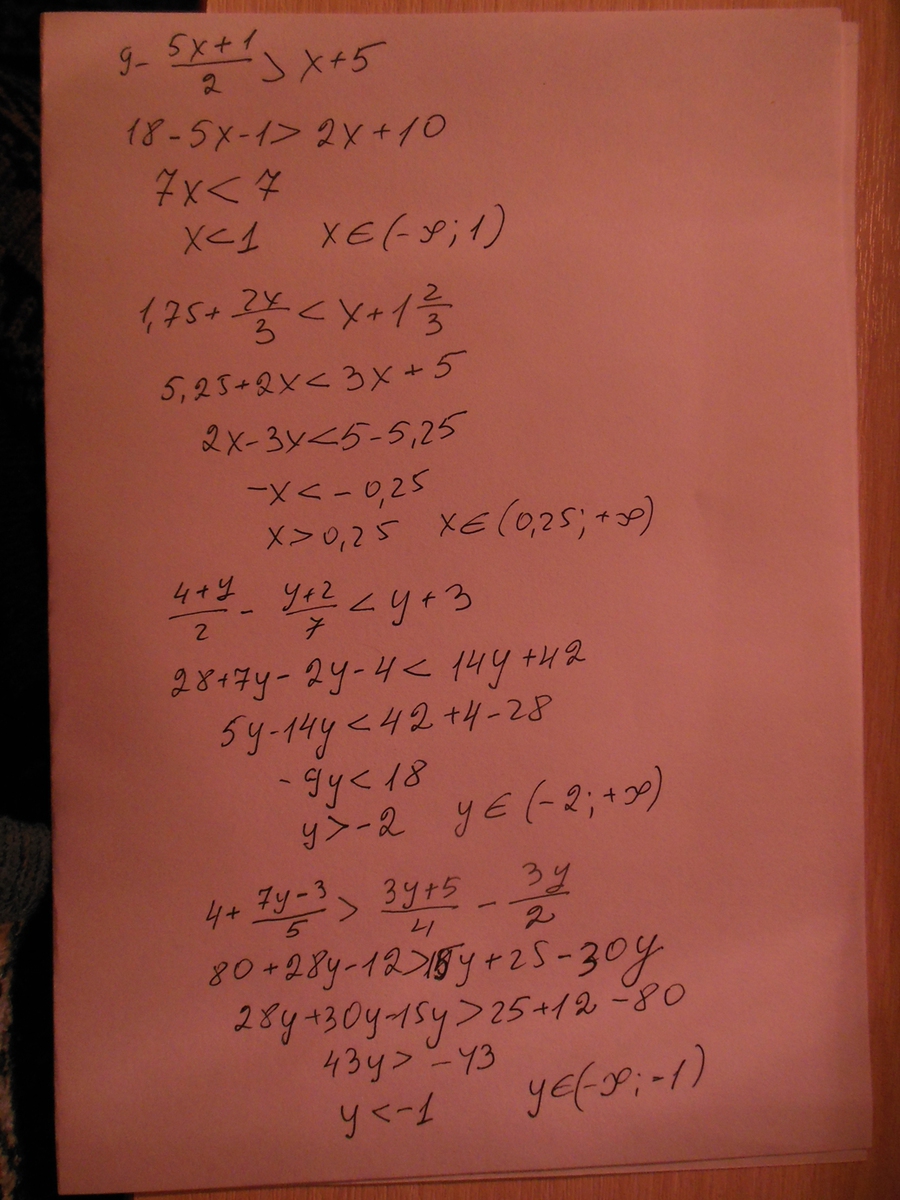 9 - (5x+1)/2 > x+5
18-5x-1 > 2x+10
7x < 7
x<1 x∈(-∞;1)
1,75+ 2x/3 < x+1 2/3
5,25+2x < 3x+5
2x-3x<5-5,25
-x < -0,25
x > 0,25 x∈(0,25;+∞)
(4+y)/2 - (y+2)/7 < y+3
28+7y-2y-4 < 14y+42
5y-14y < 42+4-28
-9y < 18
y > -2 y∈(-2;+∞)
4+ (7y-3)/5 > (3y+5)/4 - 3y/2
80+28y-12>15y+25-30y
28y+30y-15y>25+12-80
43y > -43
y < -1 y∈(-∞;-1)